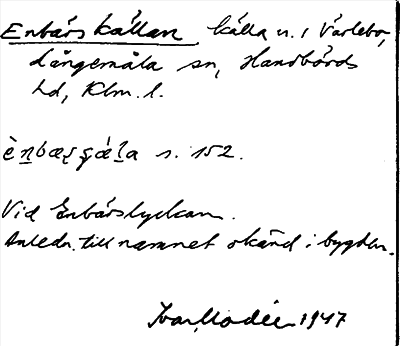 Enbärs källan källa n. i Värlebo,
Långemåla sn, Handbörds
hd, Klm. l.
ènbæʂça᷄la s. 152.
Vid Enbärslyckan.
Anledn. till namnet okänd i bygden.
Ivar Modéer 1947